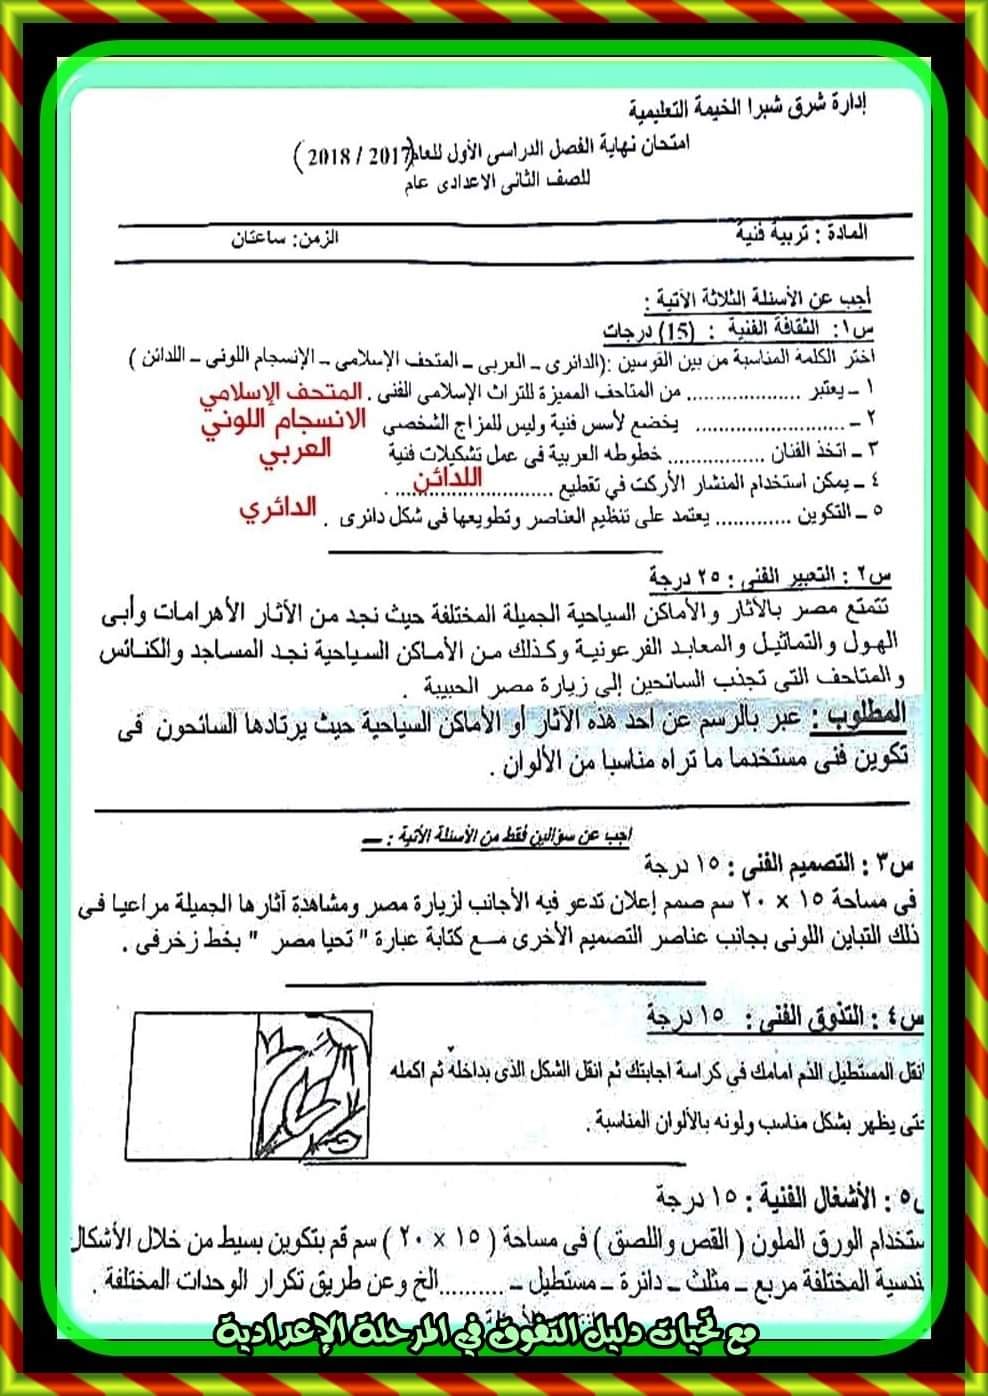 إدارة شرق شبرا الخيمة التعليمية
امتحان نهاية الفصل الدراسى الأول للعام (2017 / 2018)
للصف الثانى الاعدادى عام
المادة : تربية فنية الزمن: ساعتان
أجب عن الأسئلة الثلاثة الآتية :
س١: الثقافة الفنية : (15) درجات
اختر الكلمة المناسبة من بين القوسين :(الدائرى ـ العربى ـ المتحف الإسلامى ـ الإنسجام اللونى ـ اللدائن )
١ ـ يعتبر ................... من المتاحف المميزة للتراث الإسلامى الفنى . المتحف الإسلامي
٢ ـ ......................... يخضع لأسس فنية وليس للمزاج الشخصى الانسجام اللوني
٣ ـ اتخذ الفنان ................ خطوطه العربية فى عمل تشكيلات فنية العربي
٤ ـ يمكن استخدام المنشار الأركت في تقطيع .......................... . اللدائن
٥ ـ التكوين ............. يعتمد على تنظيم العناصر وتطويعها فى شكل دائرى . الدائري
س٢ : التعبير الفنى : ٢٥ درجة
تتمتع مصر بالآثار والأماكن السياحية الجميلة المختلفة حيث نجد من الآثار الأهرامات وأبى
الهول والتماثيل والمعابد الفرعونية وكذلك من الأماكن السياحية نجد المساجد والكنائس
والمتاحف التى تجذب السائحين إلى زيارة مصر الحبيبة .
المطلوب : عبر بالرسم عن احد هذه الآثار أو الأماكن السياحية حيث يرتادها السائحون فى
تكوين فنى مستخدما ما تراه مناسبا من الألوان .
اجب عن سؤالين فقط من الأسئلة الآتية : ـــ
س٣ : التصميم الفنى : ١٥ درجة
فى مساحة ١٥ × ٢٠ سم صمم إعلان تدعو فيه الأجانب لزيارة مصر ومشاهدة آثارها الجميلة مراعيا فى
ذلك التباين اللونى بجانب عناصر التصميم الأخرى مع كتابة عبارة " تحيا مصر " بخط زخرفى .
س٤ : التذوق الفنى : ١٥ درجة
انقل المستطيل الذم امامك فى كراسة اجابتك ثم انقل الشكل الذى بداخله ثم اكمله
حتى يظهر بشكل مناسب ولونه بالألوان المناسبة .
س٥ : الأشغال الفنية : ١٥ درجة
ستخدام الورق الملون ( القص واللصق ) فى مساحة ( ١٥ × ٢٠ ) سم قم بتكوين بسيط من خلال الأشكال
ندسية المختلفة مربع ـ مثلث ـ دائرة ـ مستطيل ـ ..........الخ وعن طريق تكرار الوحدات المختلفة .
مع تحيات دليل التفوق في المرحلة الإعدادية